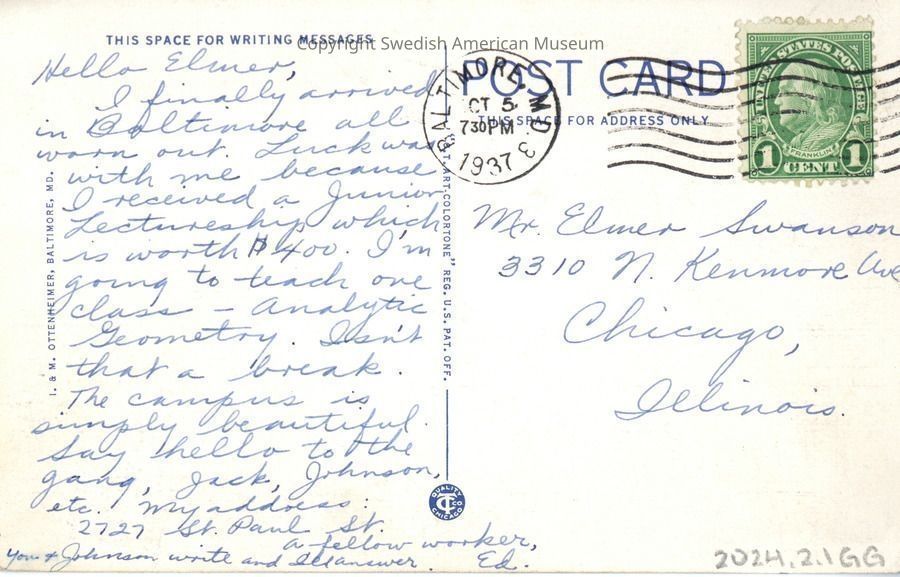 Copyright Swedish American Museum
THIS SPACE FOR WRITING MESSAGES
Hello Elmer,
I finally arrived
in Baltimore all
worn out. Luck was
with me because
I received a Junior
Lectureship which
is worth $400. I'm
going to teach one
class – Analytic
Geometry. Isn't
that a break.
The campus is
simply beautiful.
Say hello to the
gang, Jack, Johnson,
etc. My address:
2727 St. Paul St.
a fellow worker,
Ed.
You & Johnson write and I'll answer.
I. & M. OTTENHEIMER, BALTIMORE, MD.
ART-COLORTONE" REG. U.S. PAT. OFF.
QUALITY
CT CO
CHICAGO
POST CARD
THIS SPACE FOR ADDRESS ONLY
BALTIMORE, MD.
OCT 5
730PM
1937
UNITED STATES POSTAGE
FRANKLIN
1 CENT 1
Mr. Elmer Swanson
3310 N. Kenmore Ave
Chicago,
Illinois.
2024.2.1GG